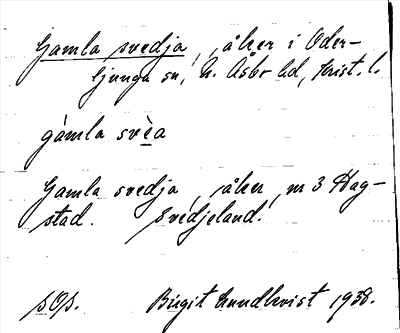 Gamla svedja, åker i Oder-
ljunga sn, N. Åsbo hd, Krist. l.
gàmla svèa
Gamla svedja, åker, nr 3 Hag-
stad. Svedjeland.
s. Birgit Lundkvist 1938.